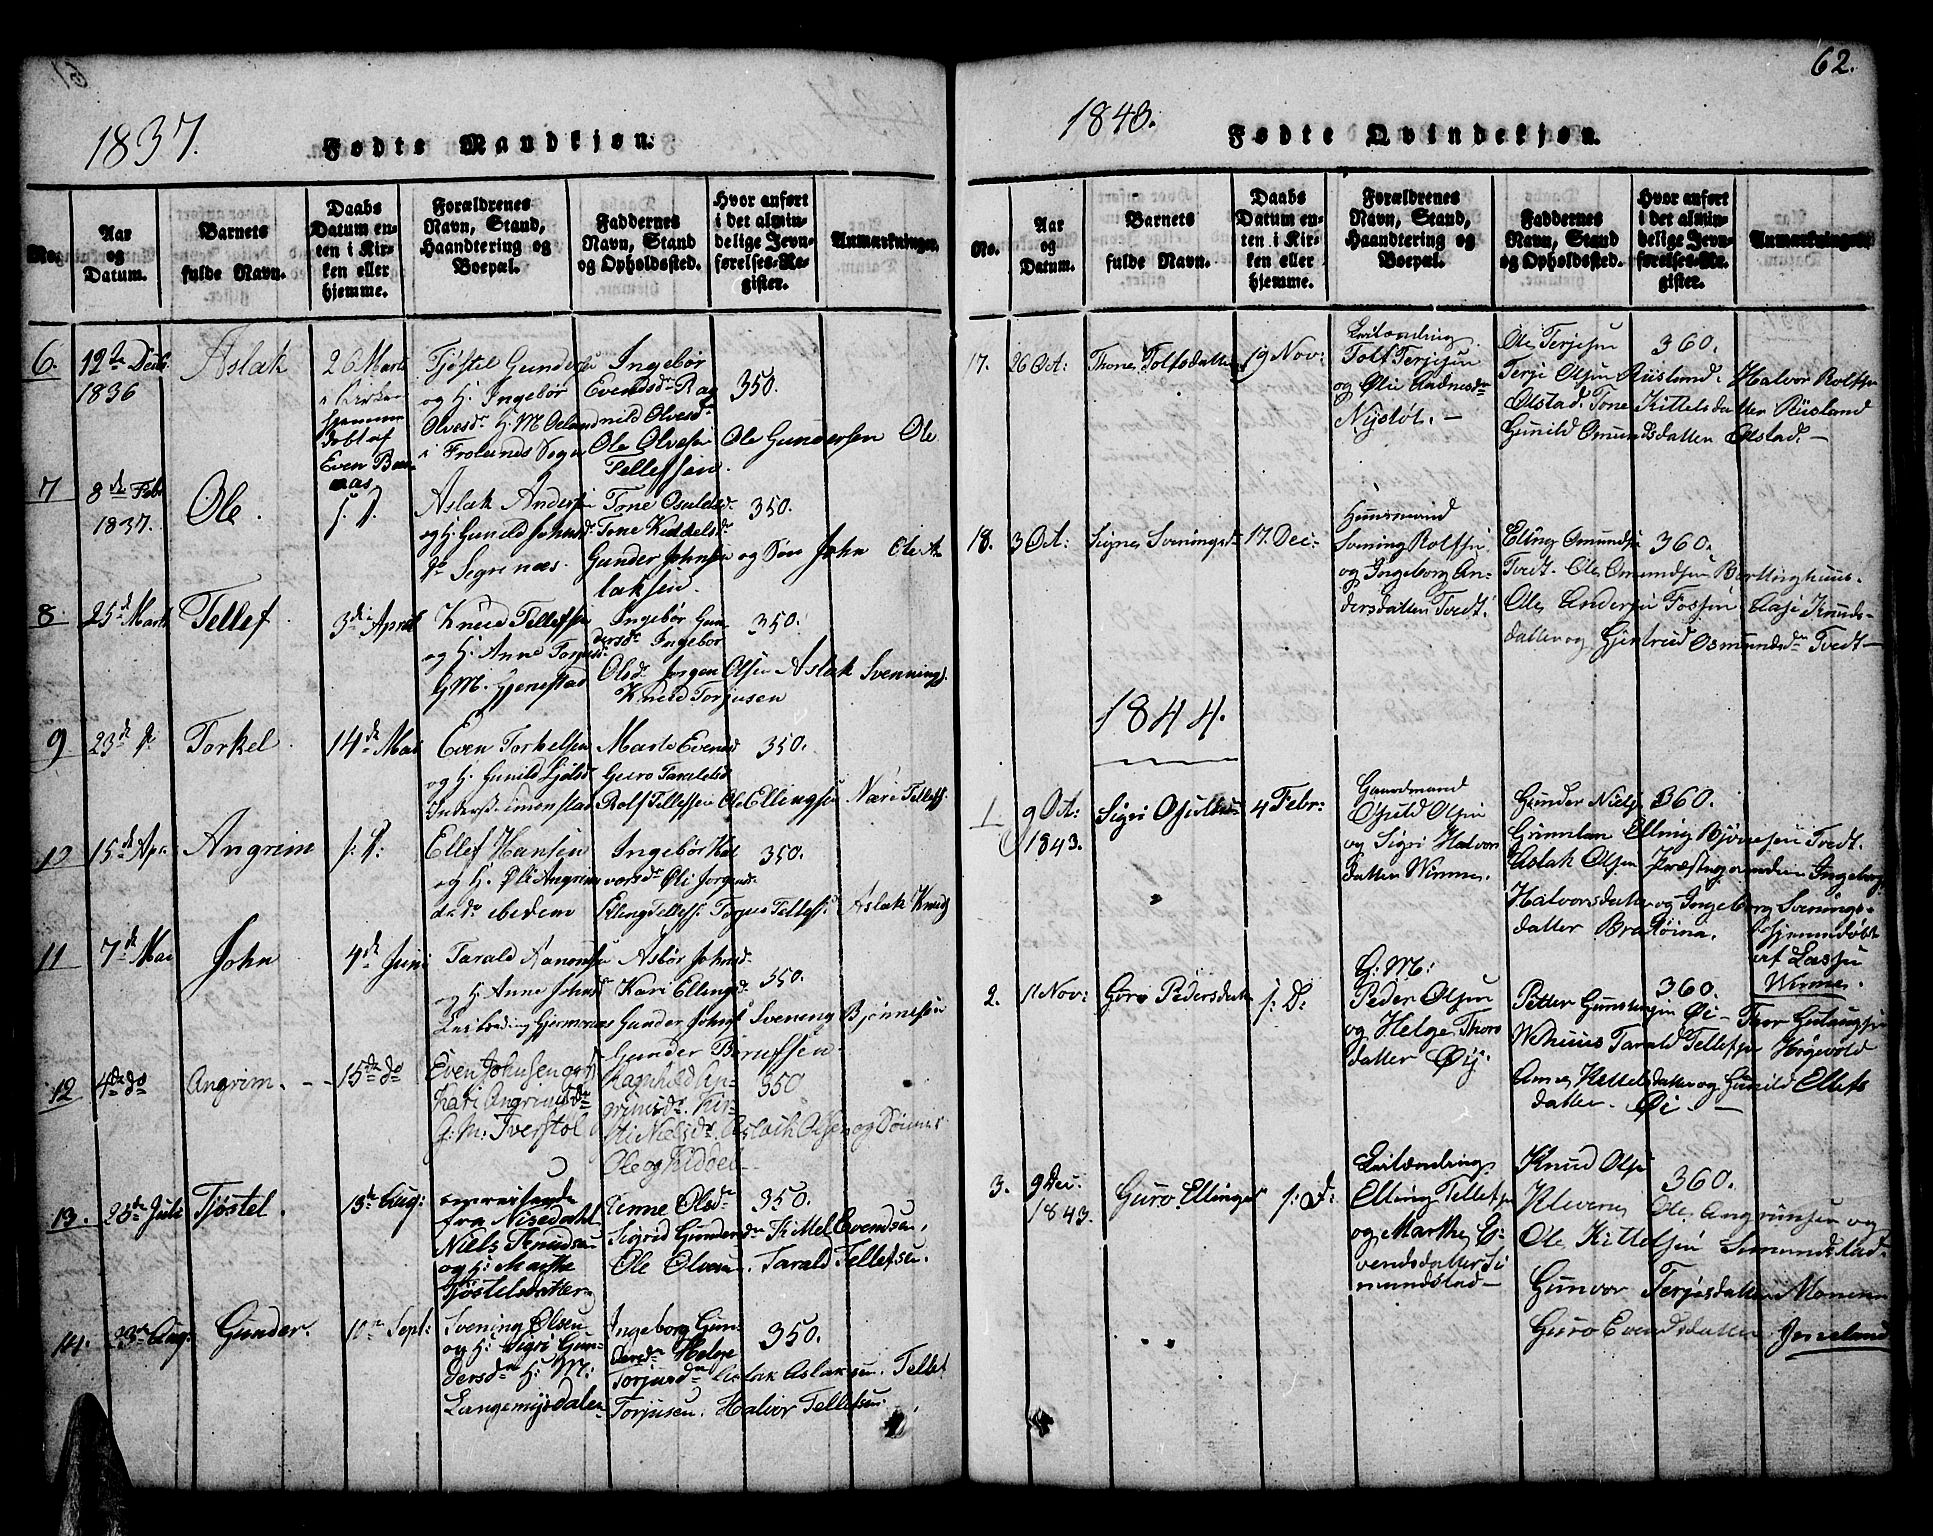 1837.
Fødte Mandkjøn.
No.
Aar og Datum.
Barnets fulde Navn.
Daabs Datum enten i Kirken eller hjemme.
Forældrenes Navn, Stand, Haandtering og Boepæl.
Faddernes Navn, Stand og Opholdssted.
Hvor anført i det almindelige Jevnførelses-Register.
Anmærkninger.
6. 12te Decb. 1836
Aslak
26 Marts
hjemme
døbt af
Even
Tjøstel Gunders
og h. Ingebør
Olvesdr G. M.
i Froland Sogn
Ingebør
Evendsdr Rag
nild Olvesdr
Ole Olvesen Ole Gundersen Ole
Tellefsen.
350.
7 8de Febr 1837.
Ole.
Aslak Anders
og h. Gunild Johnsd
Segrenæs.
Tone Osuldsd.
Tone Kiddelsd
Gunder Johnsen og Søn John Ole As
laksen.
350.
8. 25de Marts
Tellef
3die April
Knud Tellefsen
og h. Anne Torjusd
G. M. Gjenestad
Ingebør Gun
dersdr Ingebør
Olsdr Jørgen Olsen Aslak Svennings.
Knud Torjusen
350.
9. 23de
Torkel
14de Mai
Even Torkelsen
og h. Gunild Ejelsd
Marte Evensd
Guro Taraldsd
Rolf Tellefsen Ole Ellingsen Næri Tellefs.
350.
10 15de Apr.
Angrim
Ellef Hansen
og h. Øli Angrims
datr ibedem
Ingebør Hal
vorsdr Øli Jørgensd.
Elling Tellefs. Torjus Tellefs: Aslak Knuds
350.
11 7de Mai
John
4de Juni
Tarald Aanons
og h. Anne Johnsd
Asbør Johnsd.
Kari Ellingsd.
Gunder Johns Svening Bjørnesen
Gunder
350.
12 4de do
Angrim.
15de do
Even Johnsen og h
Kari Angrimsdr
G: M: Iverstøl
Ragnhild An-
grimsdr. Kir-
sti Nielsdr. Aslach Olsen og Sønner
Ole og
350
13. 25de Juli
Tjøstel.
13de Aug:
omreisende
fra Nisedahl
Niels Knudsen
og h: Marthe
Tjøstelsdatter
Anne Olsdr
Sigrid Gundersdr Kittel Evendsen,
Ole Olsen. Tarald Tellefsen.
350.
14. 23de Aug:
Gunder.
10de Sept:
Svening Olsen
og h: Sigri Gun-
dersdr G: M:
Langemyrdalen
Ingeborg Gun-
dersdr Helge
Torjusdr Aslak Aslaksen. Tellef
Torjusen. Halvor Tellefsen.
350.
62.
1843.
Fødte Qvindekjøn.
No.
Aar og Datum.
Barnets fulde Navn.
Daabs Datum enten i Kirken eller hjemme.
Forældrenes Navn, Stand, Haandtering og Boepæl.
Faddernes Navn, Stand og Opholdssted.
Hvor anført i det almindelige Jevnførelses-Register.
Anmærkninger.
17. 26 Oct:
Thone Tolfsdatter
19 Nov:
Tolf Terjesen
og Øli Aadnesdr
Nystøl. —
Ole Terjesen
Terje Olsen Riisland. Halvor Rolfsen
Ølstad. Tone Kittelsdatter Riisland
Gunild Omundsdatter Ølstad. —
360.
18. 3 Oct:
Signe Sveningsdr
17. Dec:
Huusmand
Svening Rolfsen
og Ingeborg An-
dersdatter Tvedt.
Elling Omundsen
Tvedt. Ole Omundsen
Ole Andersen Fossen Aase Knuds-
datter og Gjertrud Osmundsdr Tvedt—
360.
1844.
1 9 Oct: 1843.
Sigri Osulds
4 Febr:
Gaardmand
Osuld Olsen
og Sigri Halvors
datter Winnes.
Gunder Niels
Elling Bjørnesen Tvedt.
Aslak Olsen Ingeborg
Halvorsdatter og Ingeborg Svenings-
datter
Hjemmedøbt
af Lasse
Winnes.
360.
2. 11 Nov:
Goro Pedersdatter
G: M:
Peder Olsen
og Helge Thors
datter Øij.
Petter Gunstensen Øi — Thor
Tarald Tellefsen Høgevold
Anne Kittelsdatter og Gunild Ellefs
datter. Øi. —
360.
3. 9 Dec. 1843.
Guro Ellings
Elling Tellefsen
og Marthe E-
vendsdatter Si
mundstad—
Knud Olsen
Ole Angrimsen og
Ole Kittelsen Simundstad.
Gunvor Terjesdatter
Guro Evendsdatter
360.